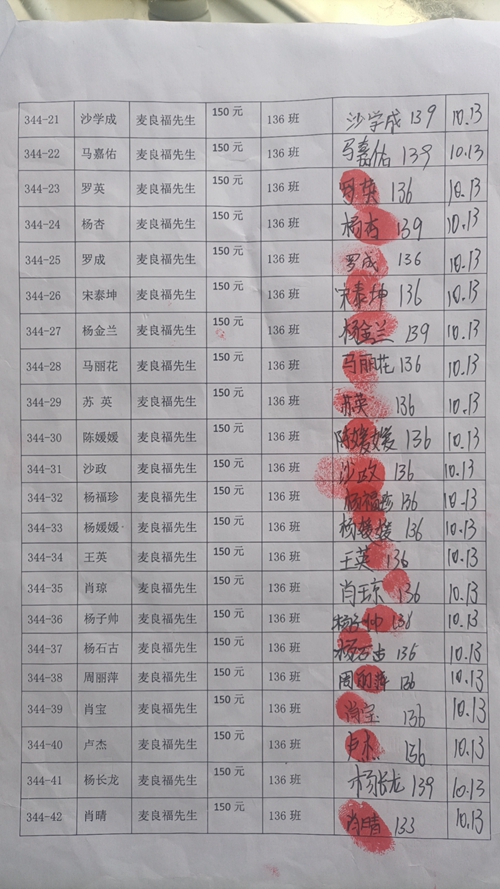 344-21 沙学成 麦良福先生 150元 136班 沙学成 139 10.13
344-22 马嘉佑 麦良福先生 150元 136班 马嘉佑 139 10.13
344-23 罗英 麦良福先生 150元 136班 罗英 136 10.13
344-24 杨杏 麦良福先生 150元 136班 杨杏 139 10.13
344-25 罗成 麦良福先生 150元 136班 罗成 136 10.13
344-26 宋泰坤 麦良福先生 150元 136班 宋泰坤 136 10.13
344-27 杨金兰 麦良福先生 150元 136班 杨金兰 139 10.13
344-28 马丽花 麦良福先生 150元 136班 马丽花 136 10.13
344-29 苏 英 麦良福先生 150元 136班 苏英 136 10.13
344-30 陈媛媛 麦良福先生 150元 136班 陈媛媛 136 10.13
344-31 沙政 麦良福先生 150元 136班 沙政 136 10.13
344-32 杨福珍 麦良福先生 150元 136班 杨福珍 136 10.13
344-33 杨媛媛 麦良福先生 150元 136班 杨媛媛 136 10.13
344-34 王英 麦良福先生 150元 136班 王英 136 10.13
344-35 肖琼 麦良福先生 150元 136班 肖琼 136 10.13
344-36 杨子帅 麦良福先生 150元 136班 杨子帅 136 10.13
344-37 杨石古 麦良福先生 150元 136班 杨石古 136 10.13
344-38 周丽萍 麦良福先生 150元 136班 周丽萍 136 10.13
344-39 肖宝 麦良福先生 150元 136班 肖宝 136 10.13
344-40 卢杰 麦良福先生 150元 136班 卢杰 136 10.13
344-41 杨长龙 麦良福先生 150元 136班 杨长龙 139 10.13
344-42 肖晴 麦良福先生 150元 136班 肖晴 133 10.13